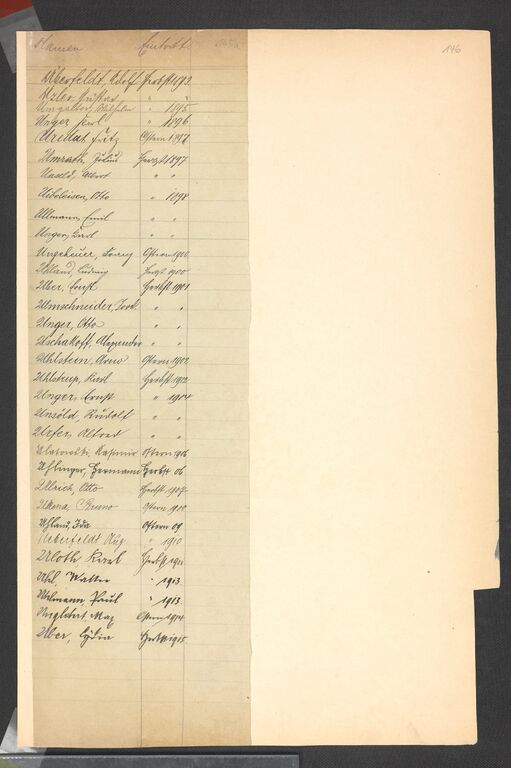 Namen Eintritt 146
Überfeldt, Adolf Herbst 1893.
Utzler, Gustav " "
Ungelter, Wilhelm " 1895
Unger, Karl " 1896
Fritz Ostern 1897
Umrath, Julius Herbst 1897
Albert " "
Uebeleisen, Otto " 1898
Ullmann, Emil " "
Unger, Karl " "
Ungeheuer, Ostern 1900
Uhland, Ludwig Herbst 1900
Uber, Ernst Herbst 1901
Umschneider, " "
Unger, Otto " "
Uschakoff, Alexander " "
Uhlstein, Ostern 1902
Uhlstrup, Karl Herbst 1902
Unger, Ernst " 1904
Unsöld, Rudolf " "
Urfer, Alfred " "
Kasimir Ostern 1906
Uhlinger, Hermann Herbst 06
Ullrich, Otto Herbst 1907
Ukena, Bruno Ostern 1908
Uhland, Ida Ostern 09.
Ueberfeldt Aug " 1910
Uloth, Karl Herbst 1911
Uhl, Walter " 1913
Uhlmann, Paul " 1913.
Unglehrt, Max Ostern 1914
Uber, Lydia Herbst 1915